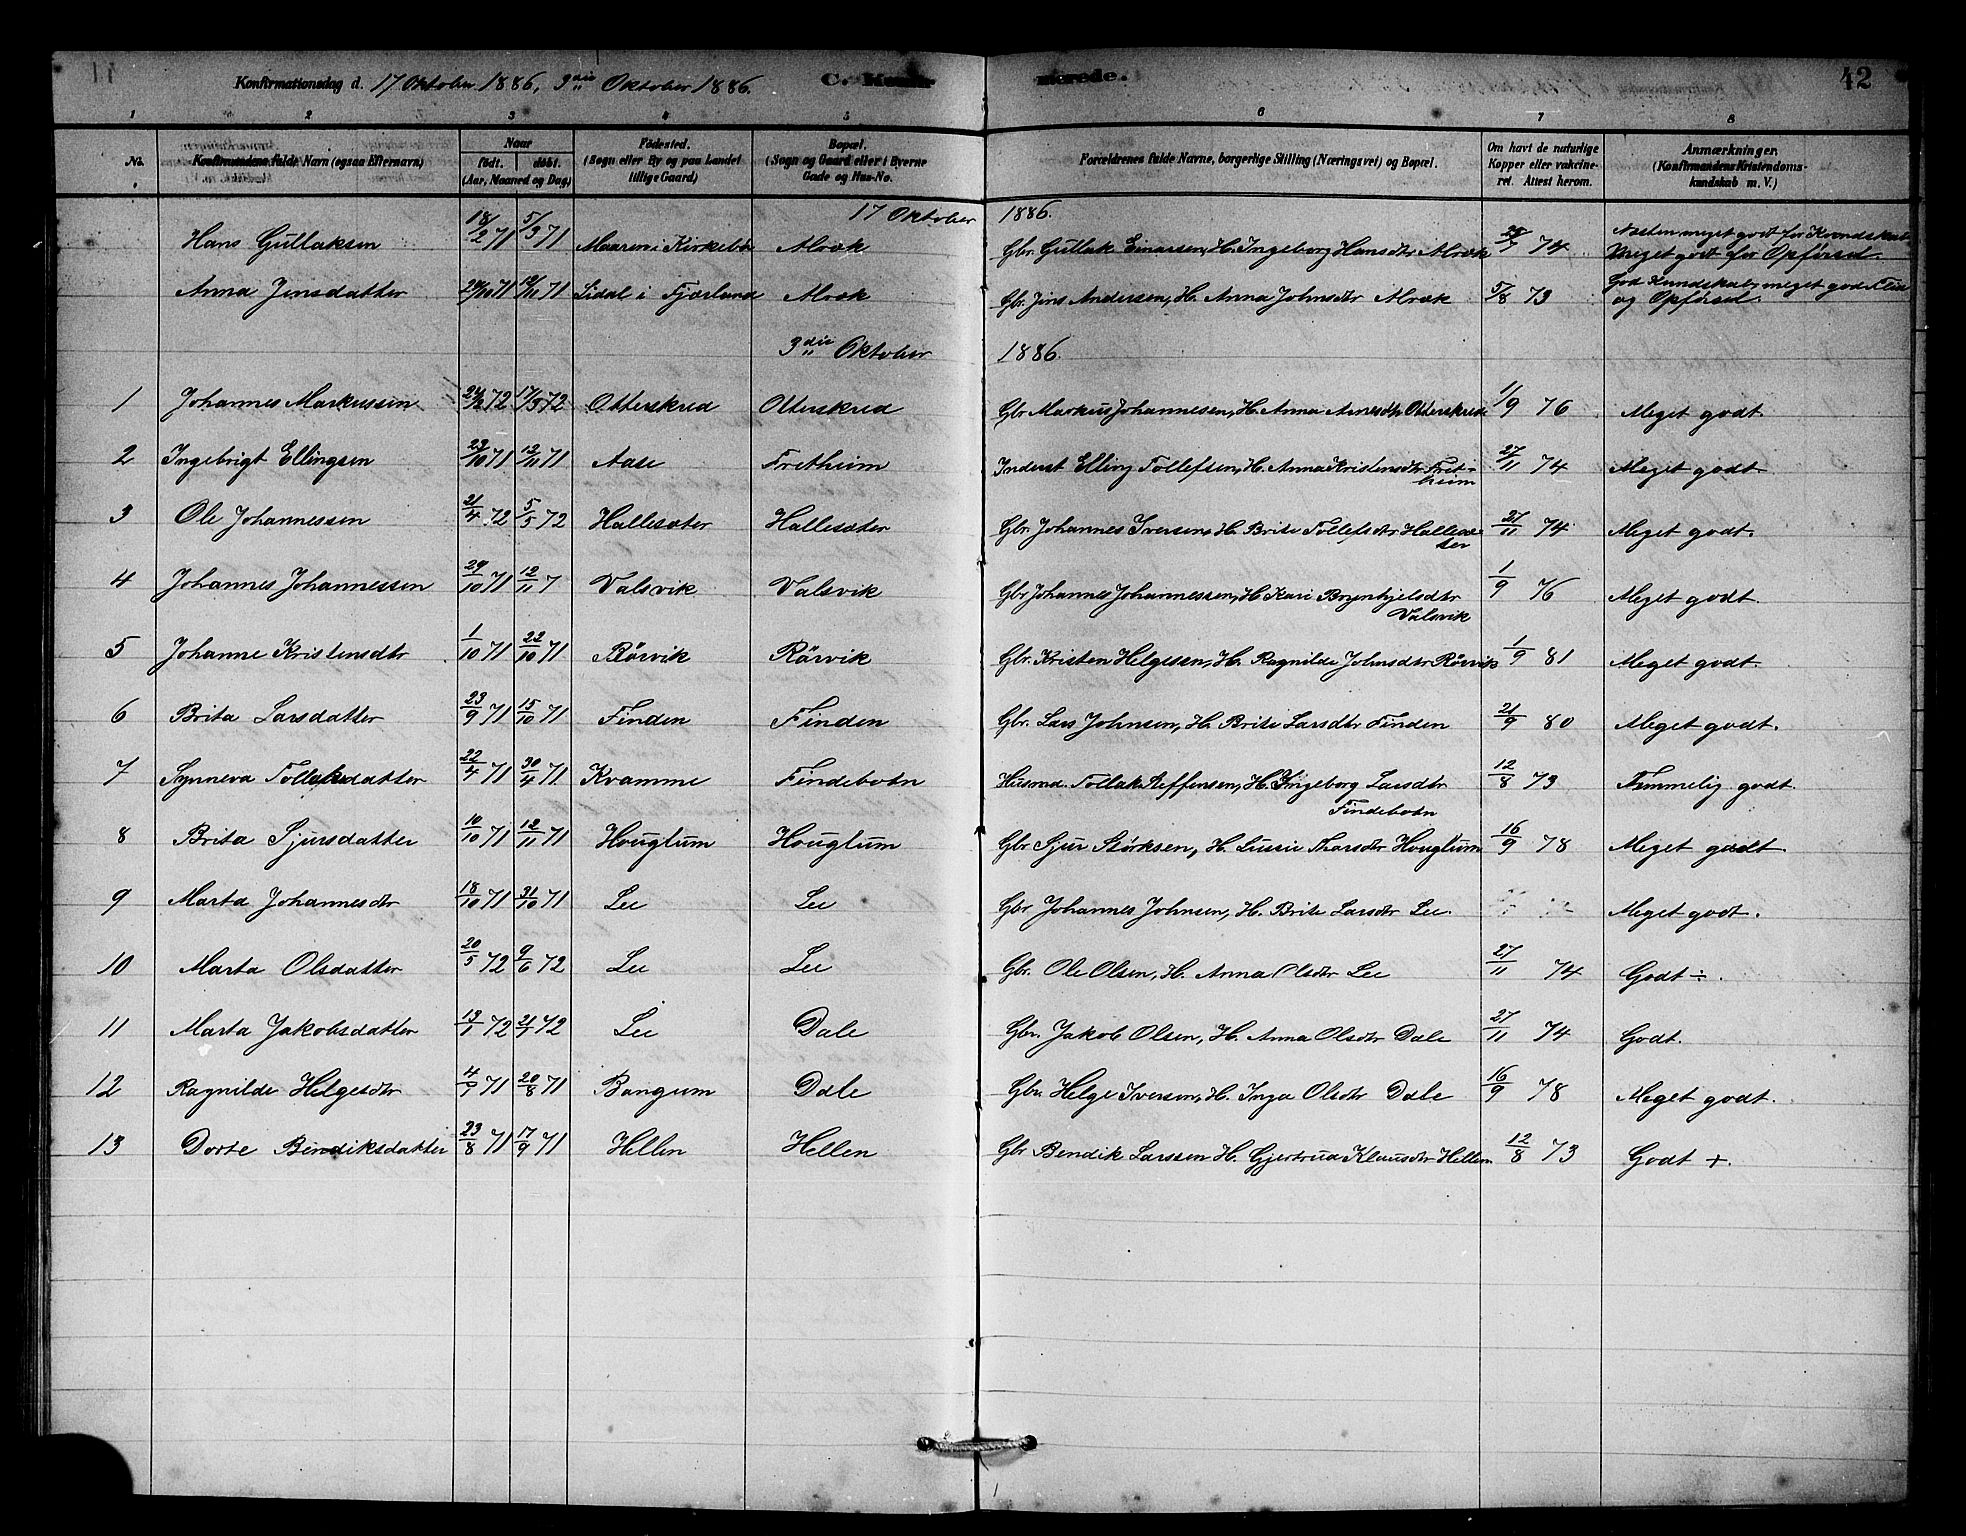 Konfirmationsdag d. 17 Oktober 1886, 3die Oktober 1886. C. Konfirmerede. 42
1 2 3 4 5 6 7 8
No. Konfirmandens fulde Navn (ogsaa Efternavn) Naar født. døbt. (Aar, Maaned og Dag) Fødested. (Sogn eller By og paa Landet tillige Gaard) Bopæl. (Sogn og Gaard eller i Byerne Gade og Hus-No. Forældrenes fulde Navne, borgerlige Stilling (Næringsvei) og Bopæl. Om havt de naturlige Kopper eller vakcineret. Attest herom. Anmærkninger. (Konfirmandens Kristendomskundskab m. V.)
17 Oktober 1886.
Hans Gullaksen 18/2 71 5/3 71 Maaren i Kirkebø Alræk Gbr. Gullak Einarsen, H. Ingeborg Hansdtr Alræk 74 Næsten meget godt for Kundskab
Meget godt for Opførsel.
Anna Jensdatter 71 71 Lidal i Fjærland Alræk Gbr. Jens Andersen, H. Anna Johnsdtr Alræk 5/8 73 God Kundskab, meget god Flid
og Opførsel.
3die Oktober 1886.
1 Johannes Markussen 72 17/3 72 Otterskred Otterskred Gbr Markus Johannesen, H. Anna Arnesdtr Otterskred 1/9 76 Meget godt.
2 Ingebrigt Ellingsen 23/10 71 12/11 71 Aase Fretheim Inderst Elling Tollefsen, H. Anna Kristensdtr Fret-
heim 27/11 74 Meget godt.
3 Ole Johannessen 21/4 72 5/5 72 Hallesæter Hallesæter Gbr. Johannes Iversen, H. Brite Tollefsdtr Hallesæ-
ter 27/11 74 Meget godt.
4 Johannes Johannessen 29/10 71 12/11 7 Valsvik Valsvik Gbr Johannes Johannessen, H Kari Brynhjelsdtr
Valsvik 1/9 76 Meget godt.
5 Johanne Kristensdtr 1/10 71 22/10 71 Rørvik Rørvik Gbr. Kristen Helgesen, H. Ragnilde Johnsdtr Rørvik 1/9 81 Meget godt.
6 Brita Larsdatter 23/9 71 15/10 71 Finden Finden Gbr. Lars Johnsen, H. Brite Larsdtr Finden 21/9 80 Meget godt.
7 Synneva Tollaksdatter 22/4 71 30/4 71 Kvamme Findebotn Husmd. Tollak Steffensen, H. Ingeborg Larsdtr
Findebotn 12/8 73 Temmelig godt.
8 Brita Sjursdatter 10/10 71 12/11 71 Houglum Houglum Gbr Sjur Størksen, H. Lussie Tharsdtr Houglum 16/9 78 Meget godt
9 Marta Johannesdtr 18/10 71 31/10 71 Lee Lee Gbr Johannes Johnsen, H. Brite Larsdtr Lee. Meget godt.
10 Marta Olsdatter 20/5 72 9/6 72 Lee Lee Gbr. Ole Olsen, H. Anna Olsdtr Lee 27/11 74 Godt ÷.
11 Marta Jakobsdatter 13/1 72 21/1 72 Lee Dale Gbr. Jakob Olsen, H. Anna Olsdtr Dale 27/11 74 Godt.
12 Ragnilde Helgesdtr 4/7 71 20/8 71 Bangum Dale Gbr. Helge Iversen, H. Inga Olsdtr Dale 16/9 78 Meget godt.
13 Dorte Bendiksdatter 23/8 71 17/9 71 Hellen Hellen Gbr Bendik Larssen H. Gjertrud Klausdtr Hellen 12/8 73 Godt +.